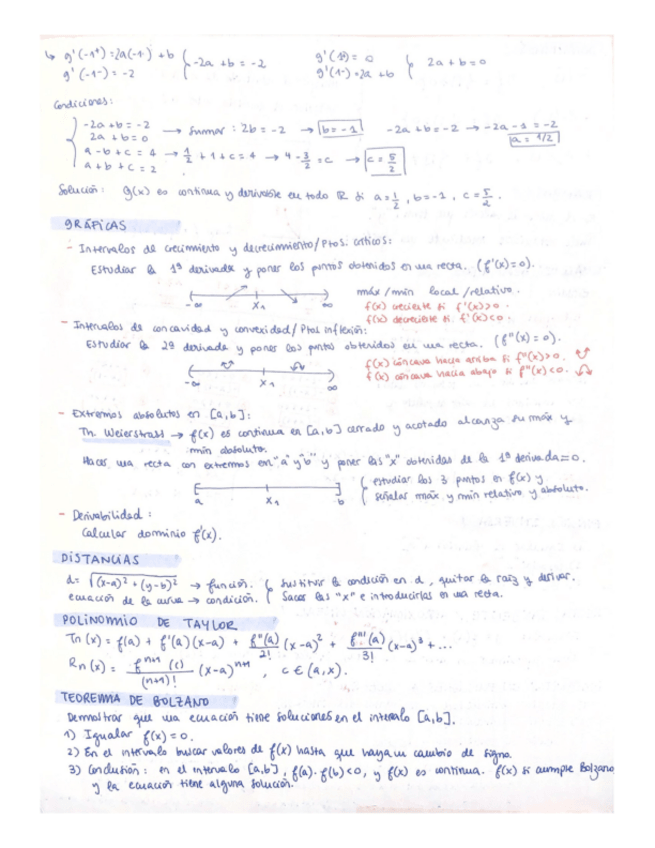 ↳ g'(-1⁺) = 2a(-1) + b } -2a + b = -2   g'(1⁺) = 0 } 2a + b = 0
g'(-1⁻) = -2   g'(1⁻) = 2a + b
Condiciones:
-2a + b = -2
2a + b = 0 → Sumar: 2b = -2 → b = -1   -2a + b = -2 → -2a - 1 = -2
a - b + c = 4 → 1/2 + 1 + c = 4 → 4 - 3/2 = c → c = 5/2   a = 1/2
a + b + c = 2
Solución: g(x) es continua y derivable en todo ℝ si a = 1/2, b = -1, c = 5/2.
GRÁFICAS
- Intervalos de crecimiento y decrecimiento/Ptos. críticos:
Estudiar la 1ª derivada y poner los puntos obtenidos en una recta. (f'(x)=0).
máx/mín local/relativo.
-∞ x₁ ∞
f(x) creciente si f'(x)>0.
f(x) decrecible si f'(x)<0.
- Intervalos de concavidad y convexidad/Ptos Inflexión:
Estudiar la 2ª derivada y poner los puntos obtenidos en una recta. (f''(x) = 0).
f(x) cóncava hacia arriba si f''(x)>0.
-∞ x₁ ∞
f(x) cóncava hacia abajo si f''(x)<0.
- Extremos absolutos en [a,b]:
Th. Weierstrass → f(x) es continua en [a,b] cerrado y acotado alcanza su máx y
mín absoluto.
Hacer una recta con extremos en "a" y "b" y poner las "x" obtenidas de la 1ª derivada=0.
estudiar los 3 puntos en f(x) y
señalar máx y mín relativo y absoluto.
a x₁ b
- Derivabilidad:
Calcular dominio f'(x).
DISTANCIAS
d = √((x-a)² + (y-b)²) → función. { Sustituir la condición en d, quitar la raíz y derivar.
ecuación de la curva → condición. { Sacar las "x" e introducirlas en una recta.
POLINOMIO DE TAYLOR
Tn(x) = f(a) + f'(a)(x-a) + f''(a)/2! (x-a)² + f'''(a)/3! (x-a)³ + ...
Rn(x) = fⁿ⁺¹(c)/(n+1)! (x-a)ⁿ⁺¹, c ∈ (a,x).
TEOREMA DE BOLZANO
Demostrar que una ecuación tiene soluciones en el intervalo [a,b].
1) Igualar f(x) = 0.
2) En el intervalo buscar valores de f(x) hasta que haya un cambio de signo.
3) Conclusión: en el intervalo [a,b], f(a)·f(b)<0, y f(x) es continua. f(x) si cumple Bolzano
y la ecuación tiene alguna solución.